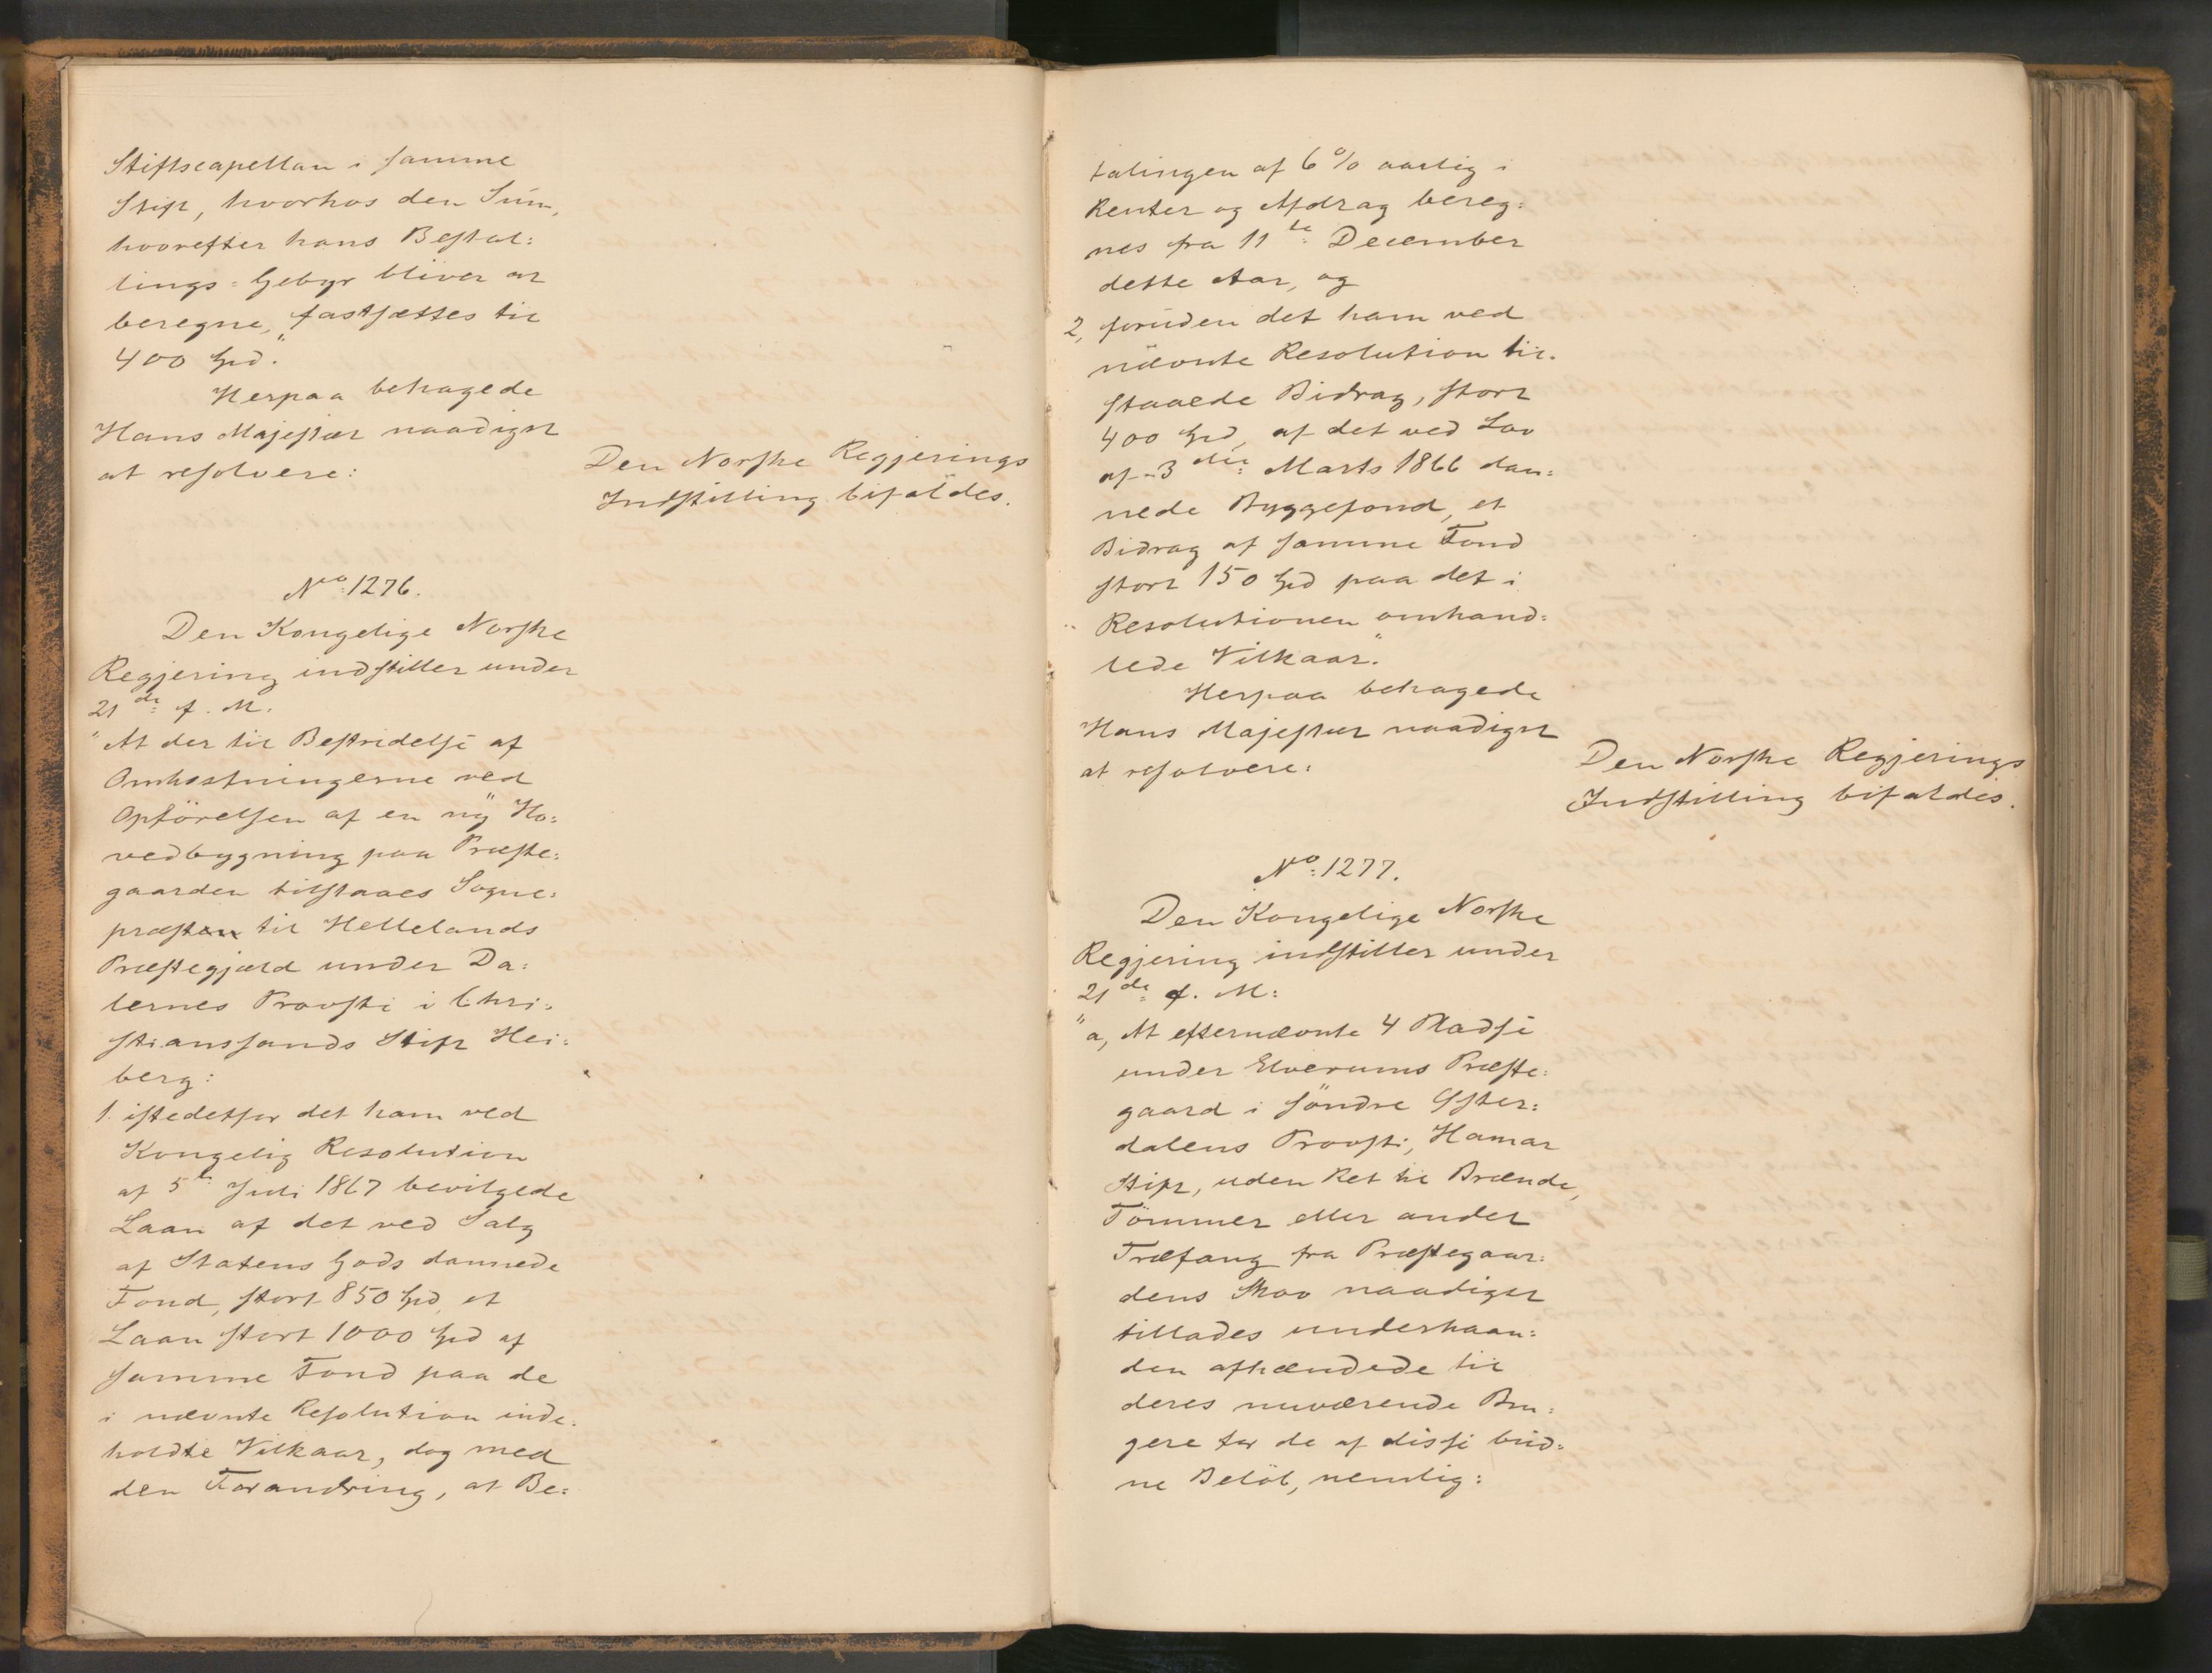 Stiftscapellan i samme
Stift, hvorhos den Sum,
hvorefter hans Bestal:
lings=Gebyr bliver at
beregne, fastsættes til
400 Spd."
Herpaa behagede
Hans Majestæt naadigst
at resolvere:
Den Norske Regjerings
Indstilling bifaldes.
No: 1276.
Den Kongelige Norske
Regjering indstiller under
21de f. M:
"At der til Bestridelse af
Omkostningerne ved
Opförelsen af en ny Ho:
vedbygning paa Præste:
gaarden tilstaaes Sogne:
præsten til Hellelands
Præstegjæld under Da:
lernes Provsti i Chri:
stianssands Stift Hei:
berg:
1. istedetfor det ham ved
Kongelig Resolution
af 5te Juli 1867 bevilgede
Laan af det ved Salg
af Statens Gods dannede
Fond, stort 850 Spd, et
Laan stort 1000 Spd af
samme Fond paa de
i nævnte Resolution inde:
holdte Vilkaar, dog med
den Forandring, at Be:
talingen af 6 % aarlig i
Renter og Afdrag bereg:
nes fra 11te December
dette Aar, og
2, foruden det ham ved
nævnte Resolution til:
staaede Bidrag, stort
400 Spd, af det ved Lov
af 3die Marts 1866 dan:
nede Byggefond, et
Bidrag af samme Fond
stort 150 Spd paa det i
Resolutionen omhand:
lede Vilkaar."
Herpaa behagede
Hans Majestæt naadigst
at resolvere:
Den Norske Regjerings
Indstilling bifaldes.
No: 1277.
Den Kongelige Norske
Regjering indstiller under
21de f. M:
"a, At efternævnte 4 Pladse
under Elverums Præste:
gaard i söndre Öster:
dalens Provsti, Hamar
Stift, uden Ret til Brænde,
Tömmer eller andet
Træfang fra Præstegaar:
dens Skov naadigst
tillades underhaan:
den afhændede til
deres nuværende Bru:
gere for de af disse bud:
ne Belöb, nemlig: